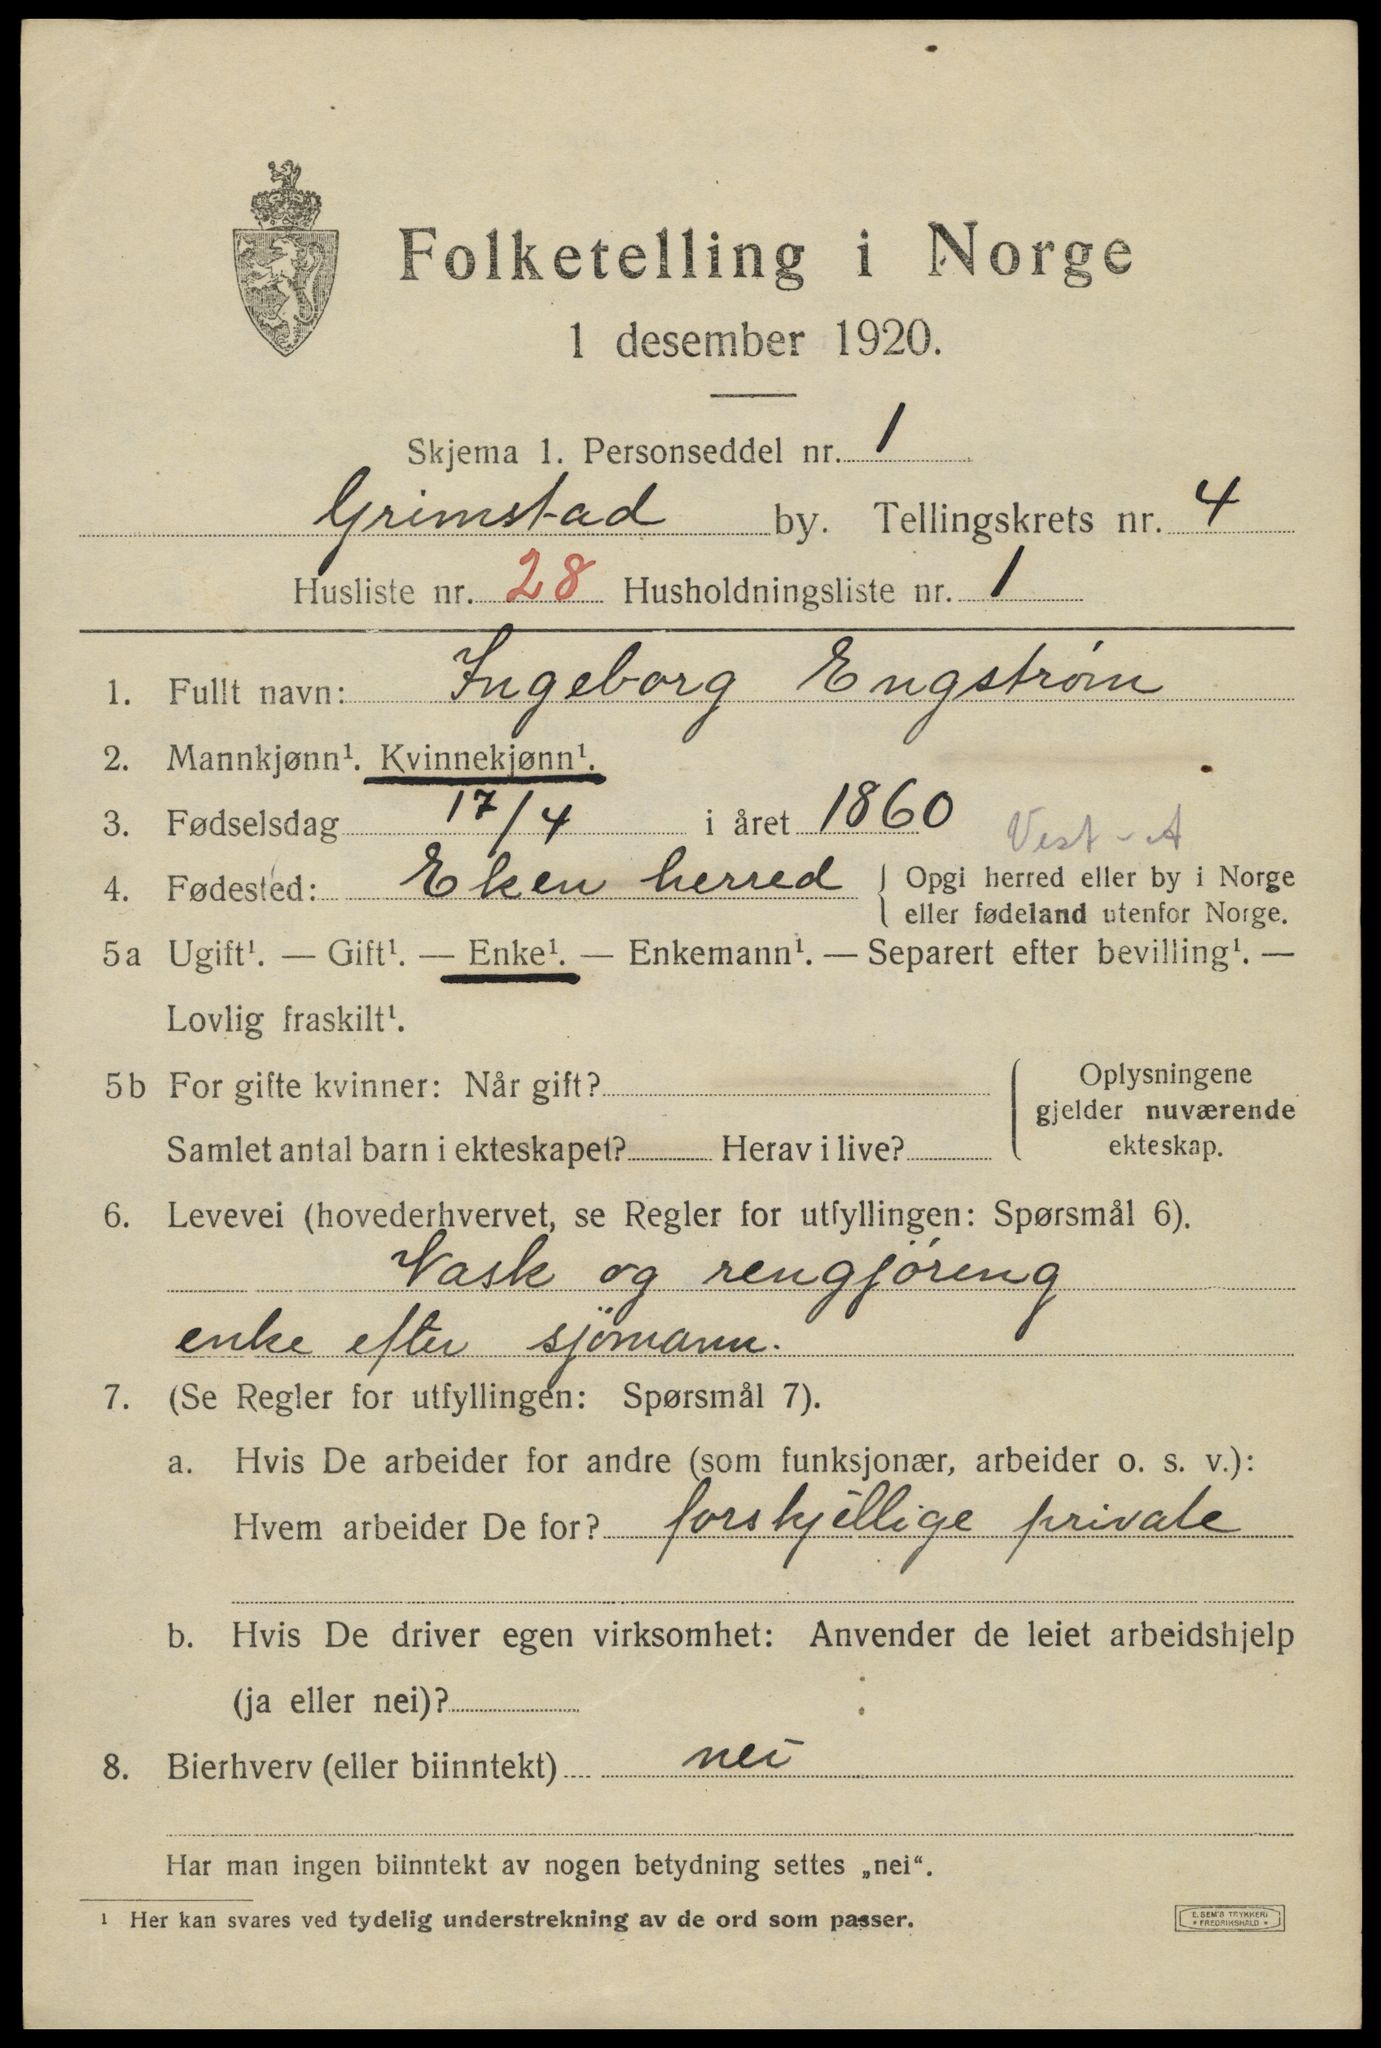 Folketelling i Norge
1 desember 1920.
Skjema 1. Personseddel nr. 1
Grimstad by. Tellingskrets nr. 4
Husliste nr. 28 Husholdningsliste nr. 1
1. Fullt navn: Ingeborg Engstrøm
2. Mannkjønn¹. Kvinnekjønn¹.
3. Fødselsdag 17/4 i året 1860
Vest-A
4. Fødested: Eken herred { Opgi herred eller by i Norge
eller fødeland utenfor Norge.
5a Ugift¹. — Gift¹. — Enke¹. — Enkemann¹. — Separert efter bevilling¹. —
Lovlig fraskilt¹.
5b For gifte kvinner: Når gift?
Samlet antal barn i ekteskapet? Herav i live?
Oplysningene
gjelder nuværende
ekteskap.
6. Levevei (hovederhvervet, se Regler for utfyllingen: Spørsmål 6).
Vask og rengjöring
enke efter sjömann.
7. (Se Regler for utfyllingen: Spørsmål 7).
a. Hvis De arbeider for andre (som funksjonær, arbeider o. s. v.):
Hvem arbeider De for? forskjellige private
b. Hvis De driver egen virksomhet: Anvender de leiet arbeidshjelp
(ja eller nei)?
8. Bierhverv (eller biinntekt) nei
Har man ingen biinntekt av nogen betydning settes „nei“.
¹ Her kan svares ved tydelig understrekning av de ord som passer.
E. SEM'S TRYKKERI
* FREDRIKSHALD *